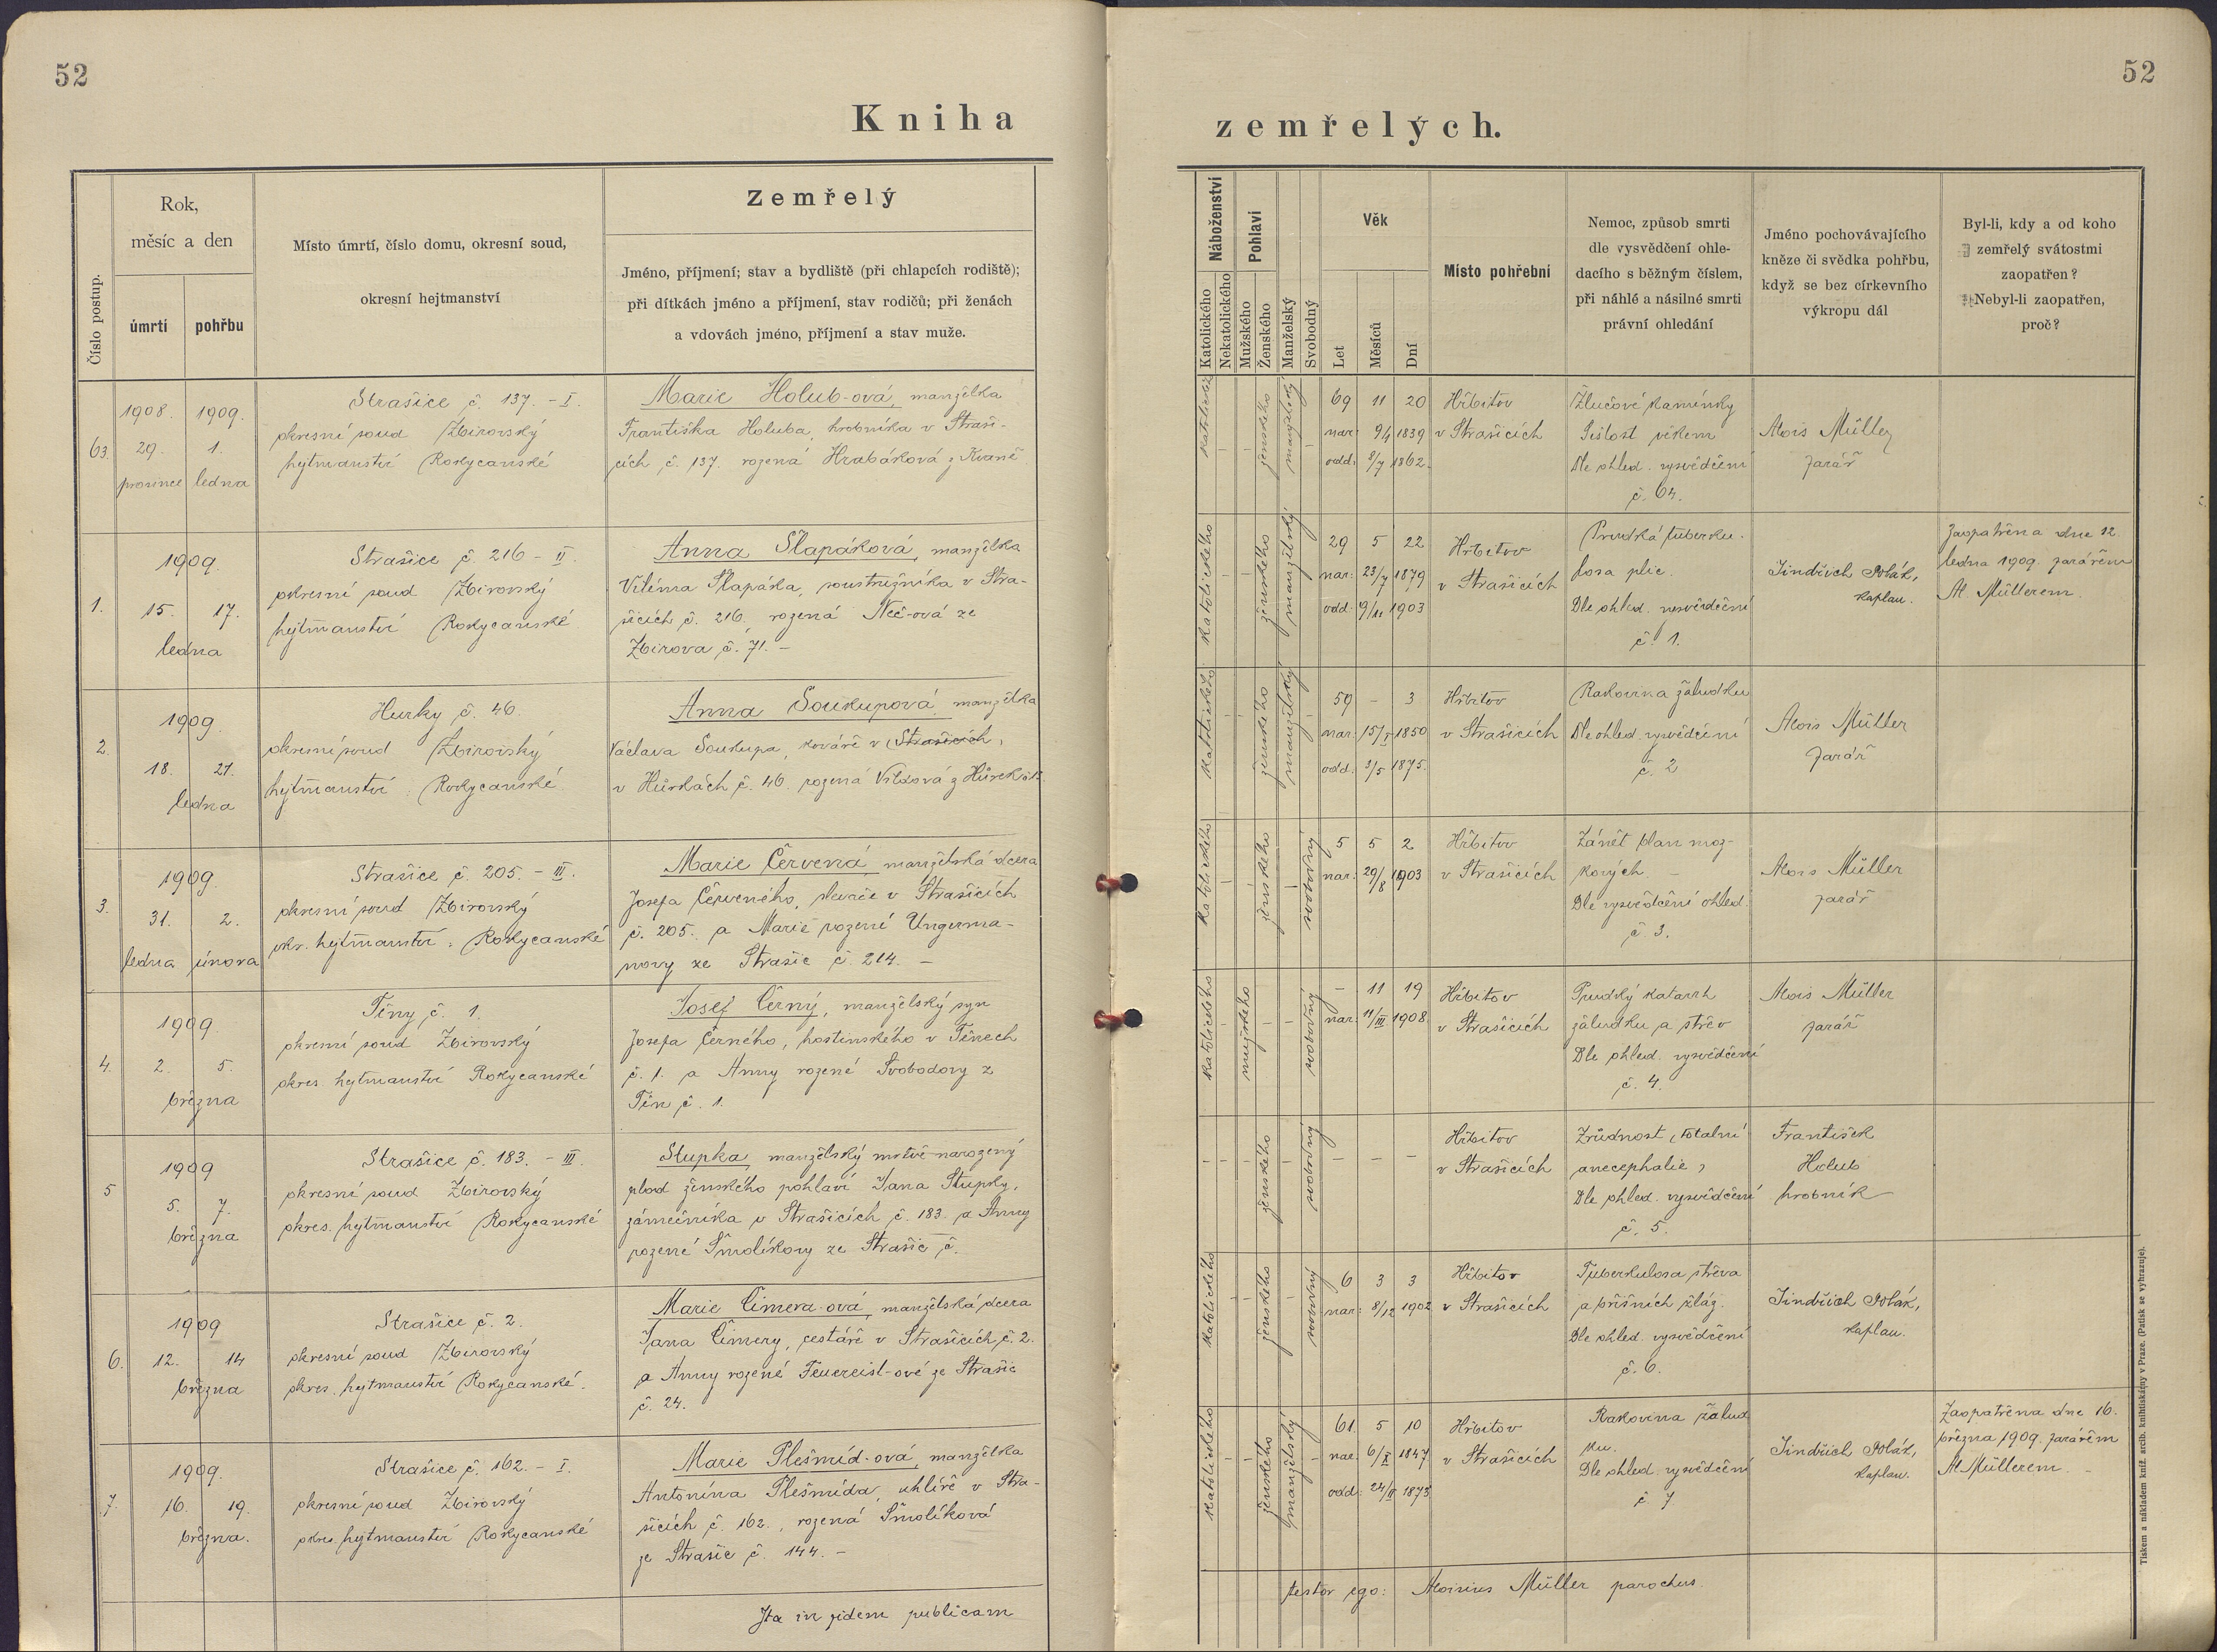 52
52
Kniha
zemřelých.
Číslo postup.
Rok,
měsíc a den
úmrtí
pohřbu
Místo úmrtí, číslo domu, okresní soud,
okresní hejtmanství
Zemřelý
Jméno, příjmení; stav a bydliště (při chlapcích rodiště);
při dítkách jméno a příjmení, stav rodičů; při ženách
a vdovách jméno, příjmení a stav muže.
Náboženství
Katolického
Nekatolického
Pohlaví
Mužského
Ženského
Manželský
Svobodný
Věk
Let
Měsíců
Dní
Místo pohřební
Nemoc, způsob smrti
dle vysvědčení ohle-
dacího s běžným číslem,
při náhlé a násilné smrti
právní ohledání
Jméno pochovávajícího
kněze či svědka pohřbu,
když se bez církevního
výkropu dál
Byl-li, kdy a od koho
zemřelý svátostmi
zaopatřen?
Nebyl-li zaopatřen,
proč?
63.
1908. 1909.
29. 1.
prosince ledna
Strašice č. 137. - I.
okresní soud Zbirovský
hejtmanství Rokycanské
Marie Holub-ová, manželka
Františka Holuba, hrobníka v Straši-
cích č. 137. rozená Hrabáková z Kvaně
katolické
ženského
manželský
69 11 20
nar: 9/1 1839
odd: 8/7 1862.
Hřbitov
v Strašicích
Žlučové kamínky
Sešlost věkem
Dle ohled. vysvědčení
č. 64.
Alois Müller
farář
1.
1909.
15. 17.
ledna
Strašice č. 216 - II.
okresní soud Zbirovský
hejtmanství Rokycanské
Anna Šlapáková, manželka
Viléma Šlapáka, soustružníka v Stra-
šicích č. 216. rozená Neč-ová ze
Zbirova č. 71. -
Katolického
ženského
manželský
29 5 22
nar: 23/7 1879
odd: 9/11 1903
Hřbitov
v Strašicích
Prudká tuberku-
losa plic.
Dle ohled. vysvědčení
č. 1.
Jindřich Polák,
kaplan.
Zaopatřena dne 12.
ledna 1909. farářem
Al. Müllerem.
2.
1909.
18. 21.
ledna
Hurky č. 46.
okresní soud Zbirovský
hejtmanství Rokycanské
Anna Soukupová, manželka
Václava Soukupa, kováře v Strašicích,
v Hůrkách č. 46. rozená Vildová z Hůrek
katolického
ženského
manželský
59 - 3
nar: 15/I 1850
odd: 3/5 1875.
Hřbitov
v Strašicích
Rakovina žaludku
Dle ohled. vysvědčení
č. 2
Alois Müller
farář
3.
1909.
31. 2.
ledna února
Strašice č. 205. - III.
okresní soud Zbirovský
okr. hejtmanství: Rokycanské
Marie Červená, manželská dcera
Josefa Červeného, slevače v Strašicích
č. 205. a Marie rozené Ungerma-
novy ze Strašic č. 214. -
Katolického
ženského
svobodný
5 5 2
nar: 29/8 1903
Hřbitov
v Strašicích
Zánět blan moz-
kových. -
Dle vysvědčení ohled.
č. 3.
Alois Müller
farář
4.
1909
2. 5.
března
Těny č. 1.
okresní soud Zbirovský
okres. hejtmanství Rokycanské
Josef Černý, manželský syn
Josefa Černého, hostinského v Těnech
č. 1. a Anny rozené Svobodovy z
Těn č. 1.
Katolického
mužského
svobodný
- 11 19
nar: 11/III 1908
Hřbitov
v Strašicích
Prudký katarrh
žaludku a střev
Dle ohled. vysvědčení
č. 4.
Alois Müller
farář
5
1909
5. 7.
března
Strašice č. 183. - III.
okresní soud Zbirovský
okres. hejtmanství Rokycanské
Stupka, manželský mrtvě narozený
plod ženského pohlaví Jana Stupky,
zámečníka v Strašicích č. 183. a Anny
rozené Smolíkovy ze Strašic č.
ženského
svobodný
- - -
Hřbitov
v Strašicích
Zrůdnost (totalní
anecephalie)
Dle ohled. vysvědčení
č. 5.
František
Holub
hrobník
6.
1909
12. 14
března
Strašice č. 2.
okresní soud Zbirovský
okres. hejtmanství Rokycanské.
Marie Čimera-ová, manželská dcera
Jana Čimery, cestáře v Strašicích č. 2.
a Anny rozené Feuereisl-ové ze Strašic
č. 24.
Katolického
ženského
svobodný
6 3 3
nar: 8/12 1902
Hřbitov
v Strašicích
Tuberkulosa střeva
a břišních žláz.
Dle ohled. vysvědčení
č. 6.
Jindřich Polák,
kaplan.
7.
1909.
16. 19.
března.
Strašice č. 162. - I.
okresní soud Zbirovský
okres. hejtmanství Rokycanské
Marie Plešmíd-ová, manželka
Antonína Plešmída, uhlíře v Stra-
šicích č. 162., rozená Smolíková
ze Strašic č. 144. -
Katolického
ženského
manželský
61. 5 10
nar: 6/X 1847
odd: 24/II 1873
Hřbitov
v Strašicích
Rakovina žalud
ku.
Dle ohled. vysvědčení
č. 7
Jindřich Polák,
kaplan.
Zaopatřena dne 16.
března 1909. farářem
Al. Müllerem. -
Ita in fidem publicam
testor ego: Aloisius Müller parochus.
Tiskem a nákladem kníž. arcib. knihtiskárny v Praze. (Patisk se vyhrazuje).